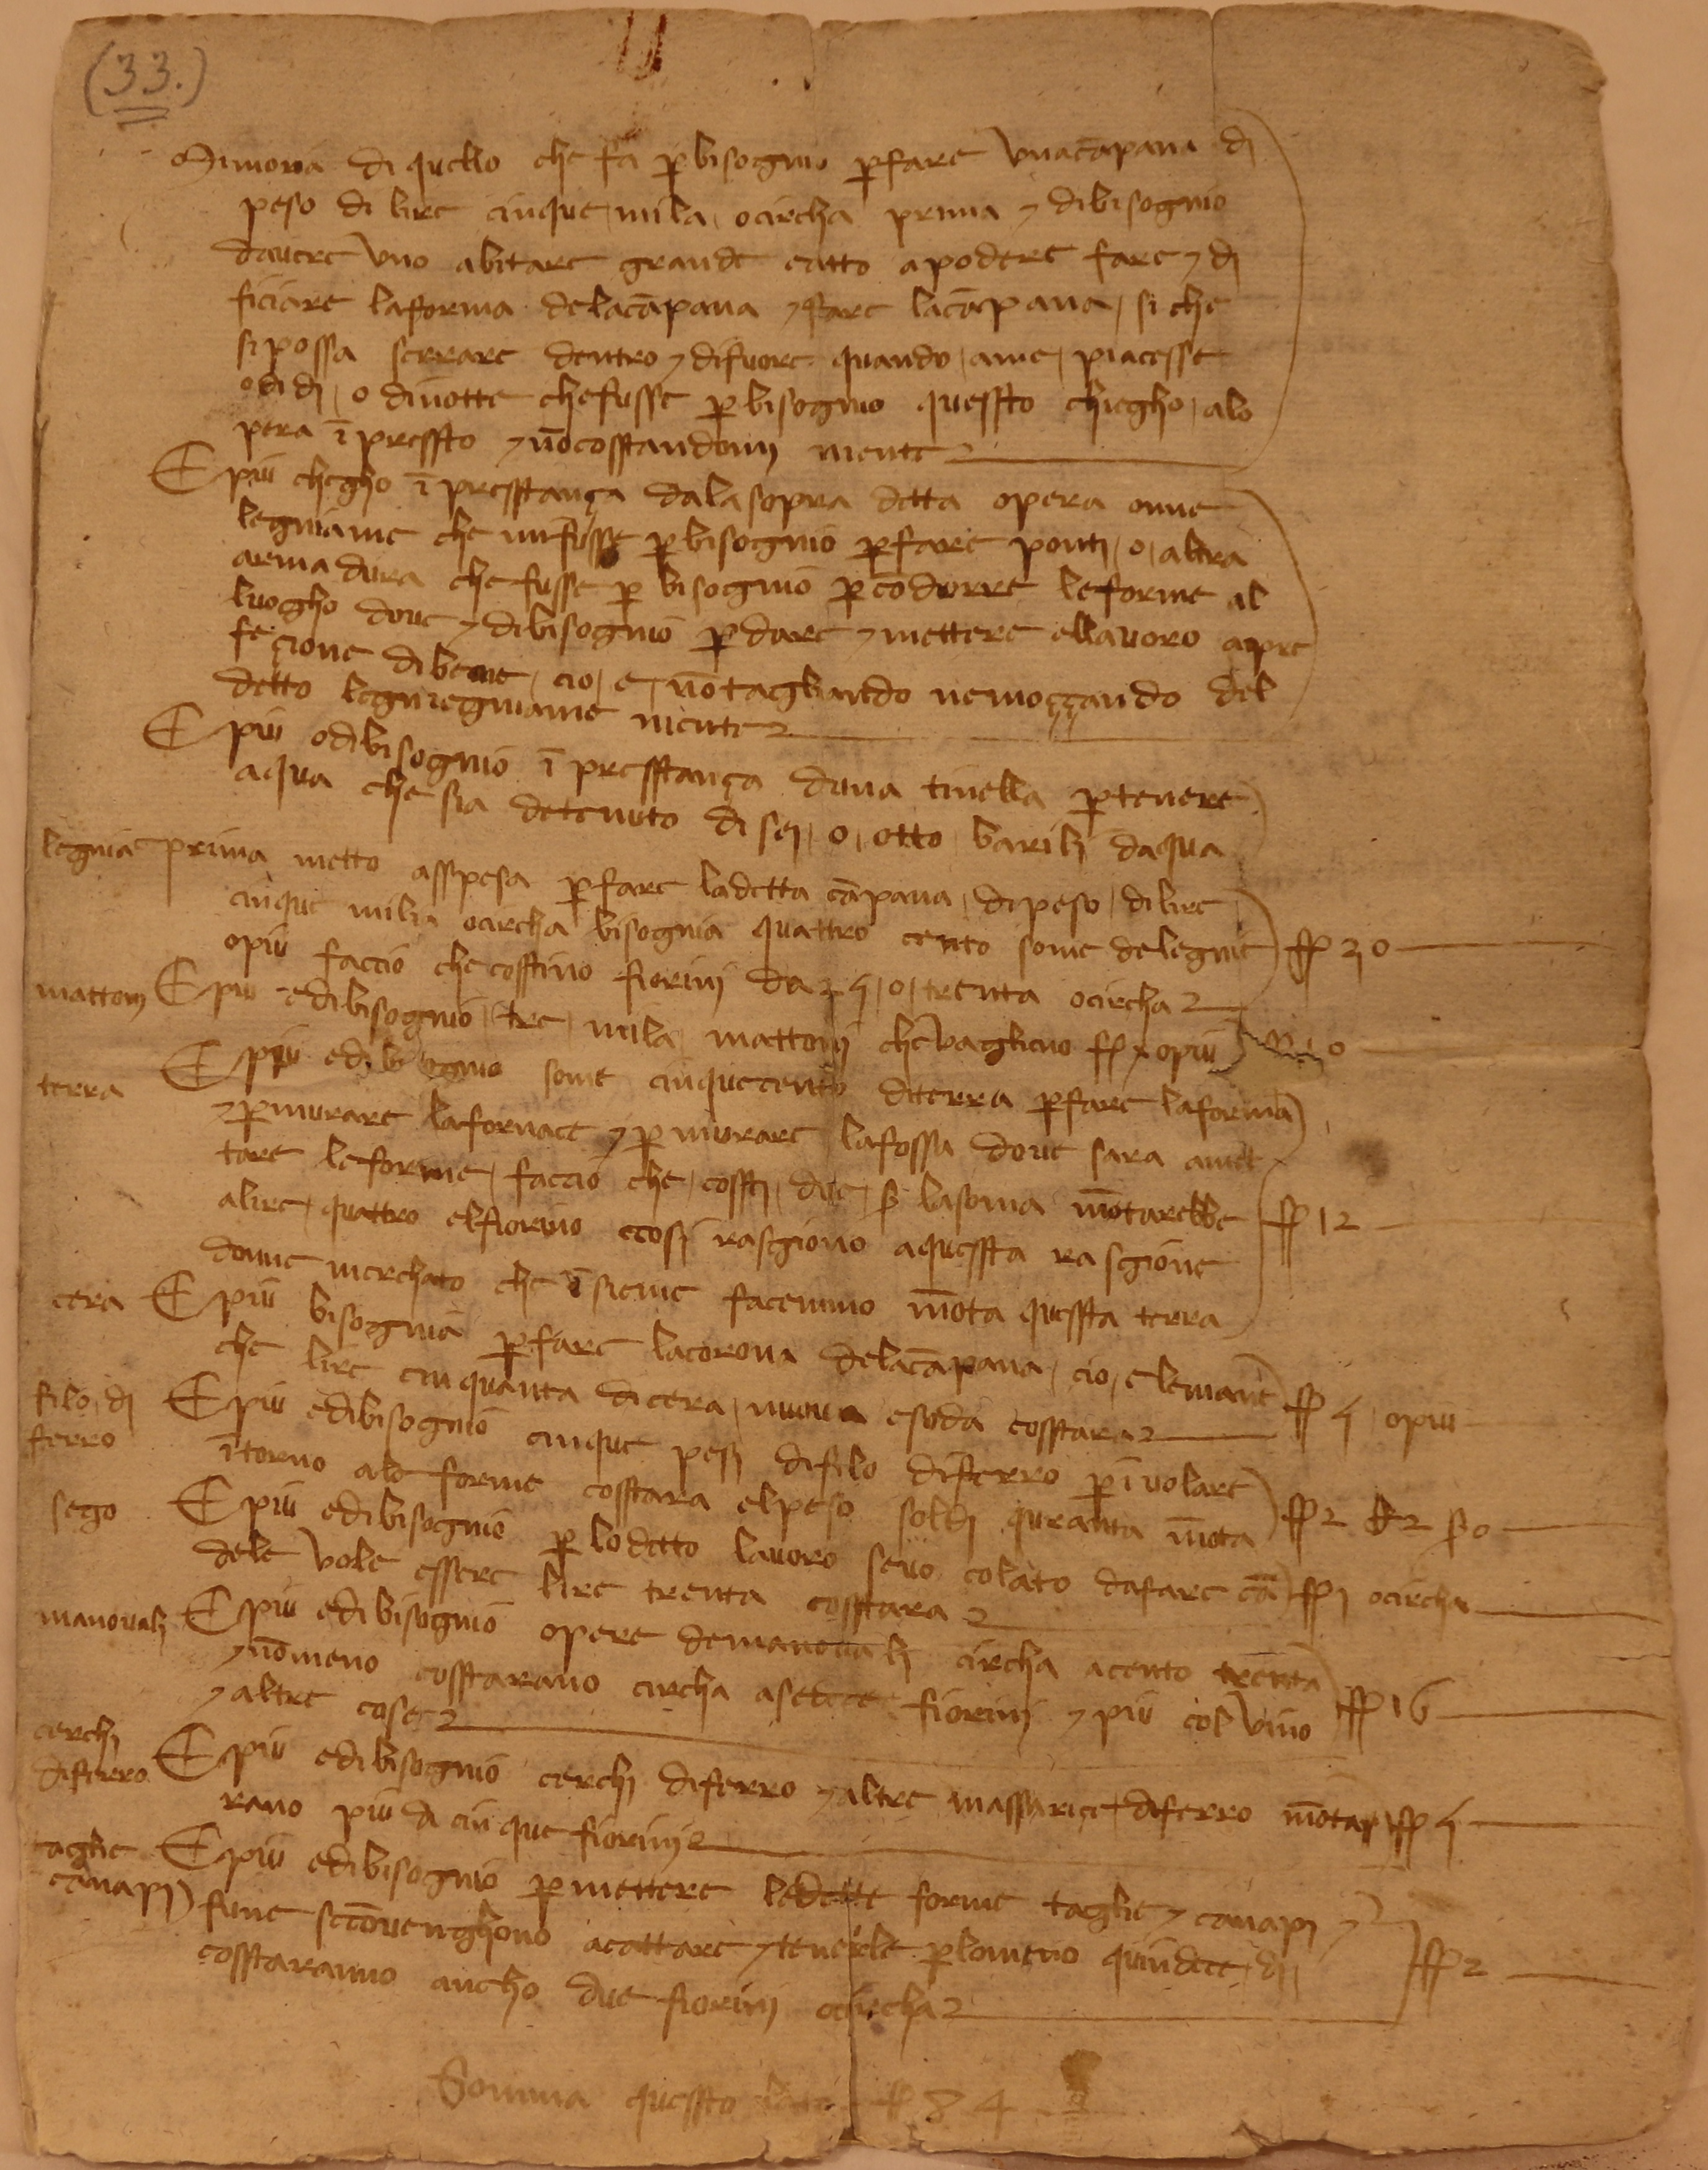 (33.)
Simona di quello che fa p bisognio p fare una cāpana di
peso di lire cinque mila ocircha prima 7 dibisognio
davere uno abitare grande eatto a podere fare 7 di
ficiare laforma delacāpana 7 fare lacāpana, si che
si possa serrare dentro 7 difuore quando ame piacesse
odi dj, o dinotte chefusse p bisognio quessto chiegho, alo
pera ī pressto 7 nōcosstandomj niente
E piu chegho ī presstança dalasopra detta opera onne
legniame che mifusse p bisognio p fare pontj, o, altra
armadura che fusse p bisognio p cōdurre leforme al
luogho dove 7 dibisognio p dare 7 mettere ellavoro apre
feçione dibene, cio, e, nōtagliando nemoççando del
detto legniame niente
E piu odibisognio ī presstança duna tinella p tenere
aqua che sia detenuto di sej, o, otto barilj daqua
legnia prima metto asspesa p fare ladetta cāpana, dipeso, dilire
cinque milia ocircha bisognia quattro cento some delegnie ff 30
opiu faccio checosstino fiorinj da 25, o, trenta ocircha
mattonj E piu edibisognio tre mila mattonj che vaglieno ff x opiu
terra E piu edibisognio some cinquecento diterra p fare laforma
7 p murare lafornace 7 p murare lafossa dove sara amet
tare leforme, faccio che, cosstj, due, s lasoma mōtarebbe ff 12
alire, quattro elfiorino ecosi rasgiono aquessta rasgione
donne merchato che īsieme facemmo mōta quessta terra
cera E piu bisognia p fare lacorona delacāpana, cio, e lemanē
che lire cinquanta dicera, nuova esoda cosstara ff 5 opiu
filo, dj
ferro E piu edibisognio cinque pesj difilo diferro p īvolare
ītorno ale forme cosstara elpeso soldj quranta mōta ff 2 £ 2 s 0
sego E piu edibisognio p lodetto lavoro sevo colato dafare cā
dele vole essere lire trenta cosstara ff 1 ocircha
manovalj E piu edibisognio opere demanovalj circha acento trenta
7 nōmeno cosstarano circha asedece fiorinj 7 piu col vino ff 16
7 altre cose
cerchj
diferro E piu edibisognio cerchj diferro 7 altre massariçe diferro mōta ff 5
rano piu di cinque fiorinj
taglie
canapj E piu edibisognio p mettere ledette forme taglie 7 canapj 7
fune secōvenghono acattare 7 tenerle p lomeno quindece, dj, ff 2
cosstaranno ancho due fiorinj ocircha
Somma quessto lato ff 84